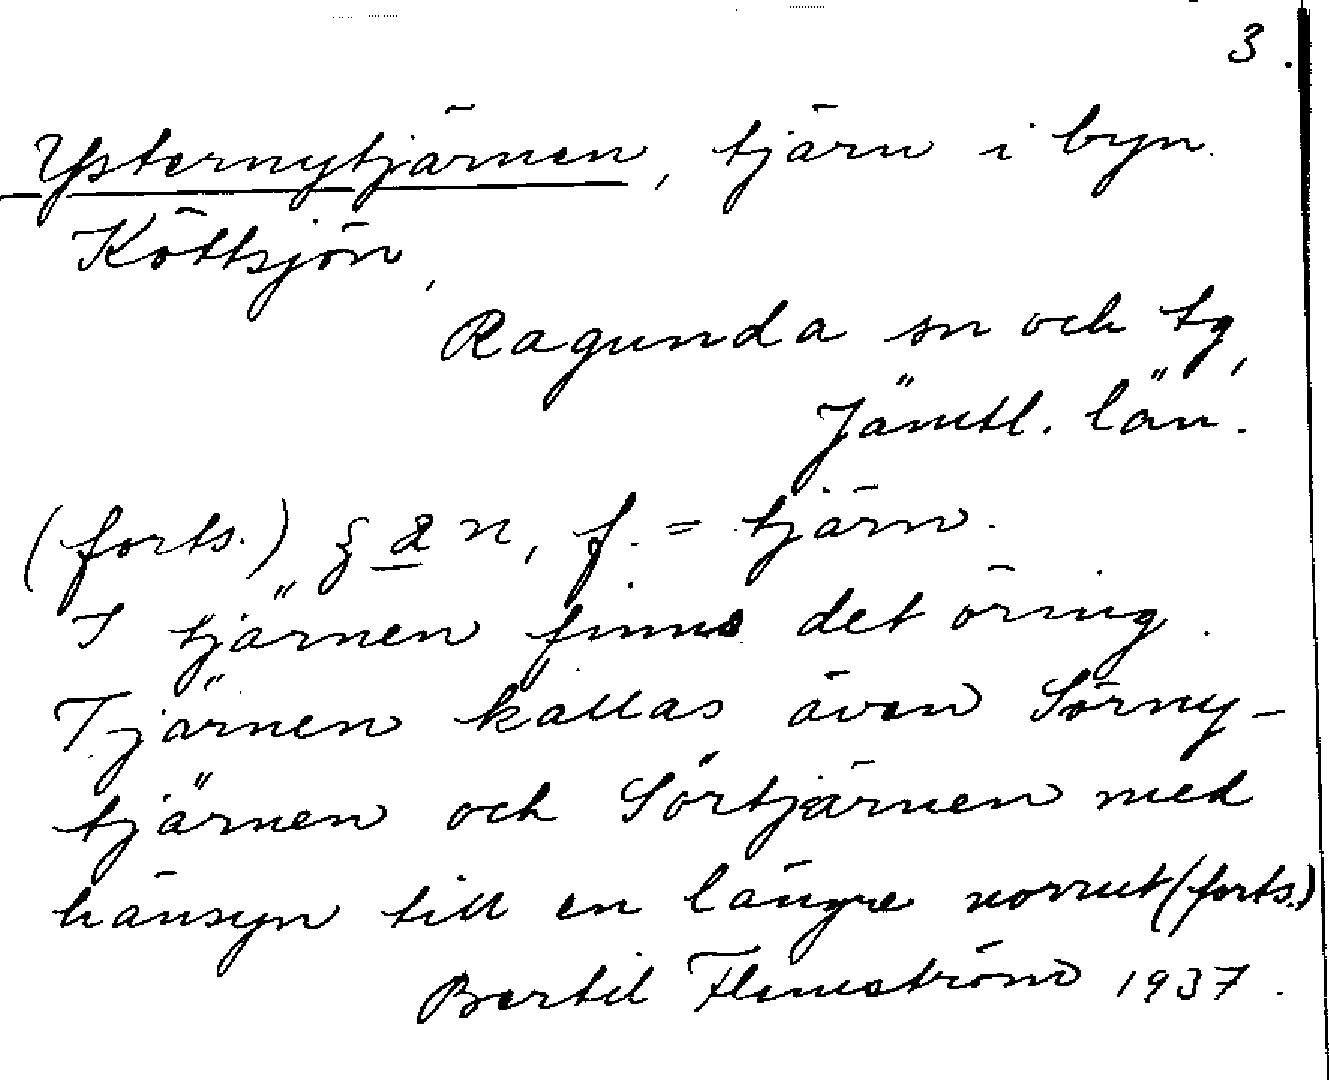 3.
Ysternytjärnen, tjärn i byn
Köttsjön,
Ragunda sn och tg,
Jämtl. län.
(forts.) ξ a n, f. = tjärn.
I tjärnen finns det öring.
Tjärnen kallas även Sörny-
tjärnen och Sörtjärnen med
hänsyn till en längre norrut (forts.)
Bertil Flemström 1937.